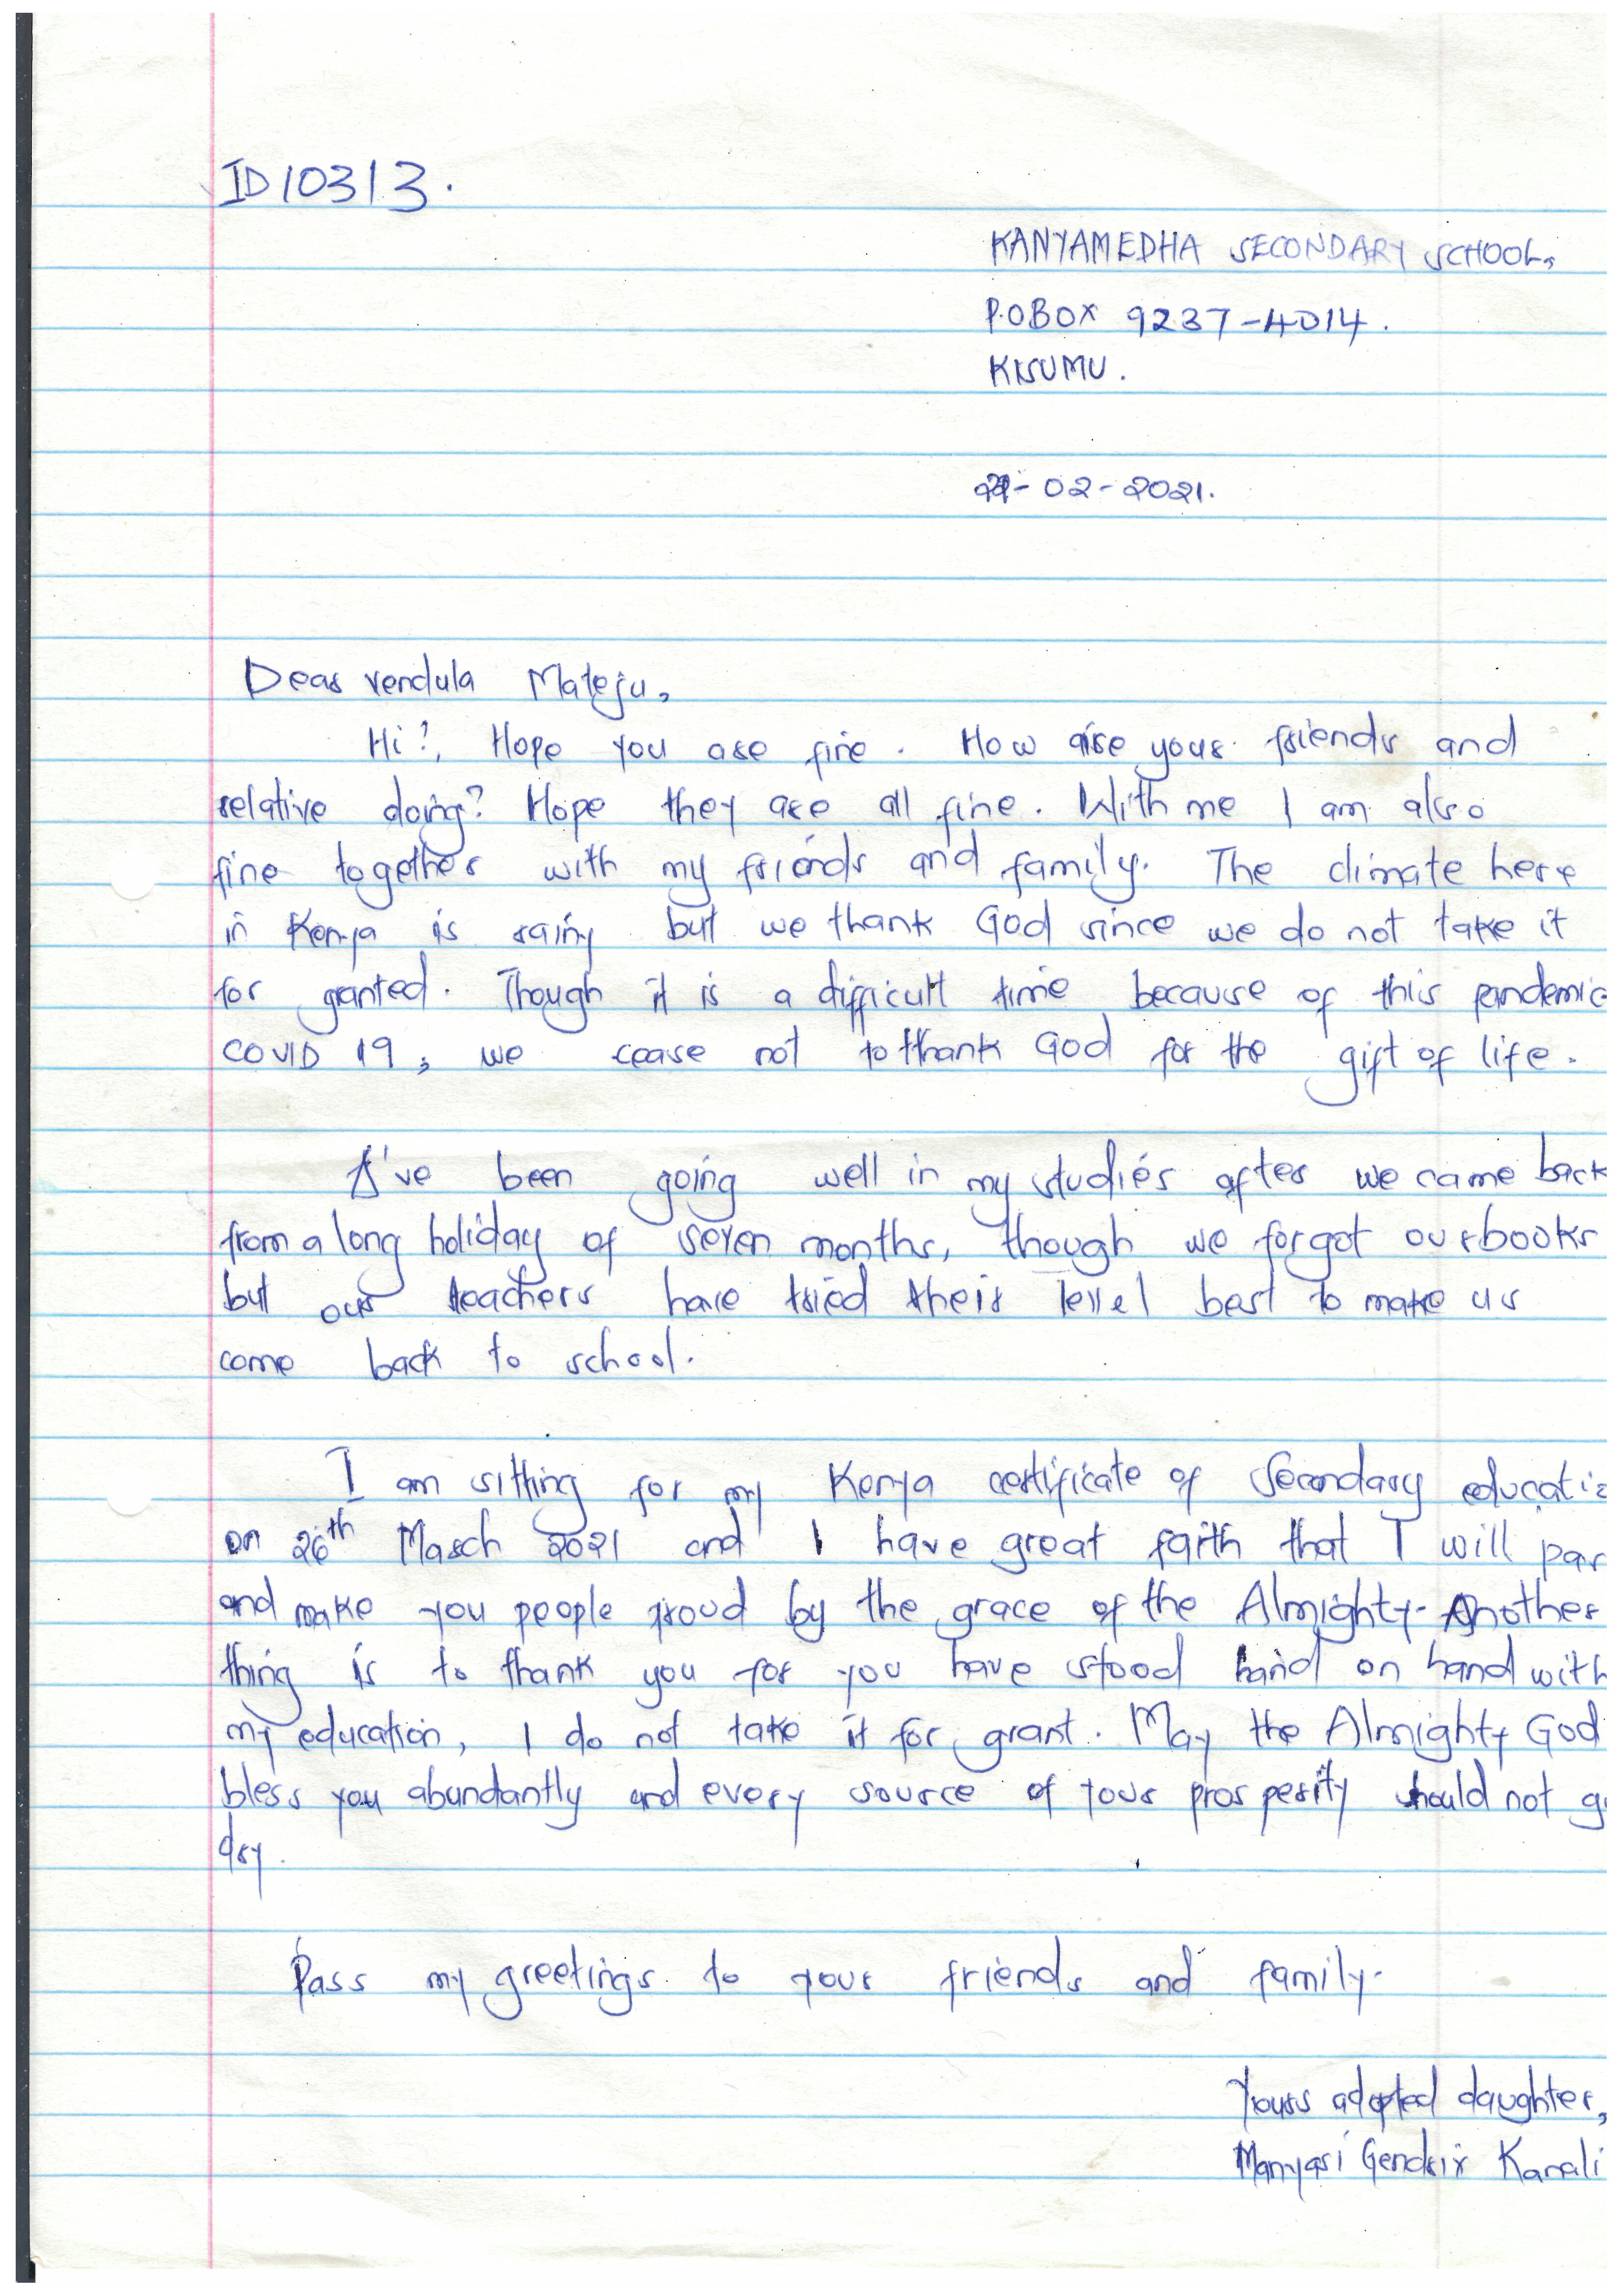 ID10313.
KANYAMEDHA SECONDARY SCHOOL,
P.O BOX 9237-4014.
KISUMU.
-02-2021.
Dear Vendula Mateju,
Hi?, Hope you are fine. How are your friends and
relative doing? Hope they are all fine. With me I am also
fine together with my friends and family. The climate here
in Kenya is rainy but we thank God since we do not take it
for granted. Though it is a difficult time because of this pandemic
COVID 19, we cease not to thank God for the gift of life.
I've been going well in my studies after we came back
from a long holiday of seven months, though we forgot our books
but our teachers have tried their level best to make us
come back to school.
I am sitting for my Kenya certificate of Secondary educatio
on 26th March 2021 and I have great faith that I will pas
and make you people proud by the grace of the Almighty. Another
thing is to thank you for you have stood hand on hand with
my education, I do not take it for grant. May the Almighty God
bless you abundantly and every source of your prosperity should not g
dry.
Pass my greetings to your friends and family.
Yours adopted daughter,
Manyasi Gendrix